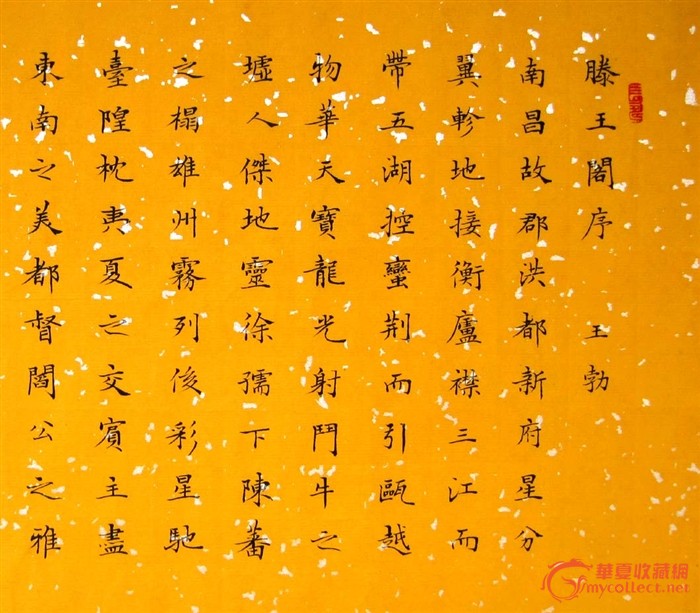 滕王閣序 王勃
南昌故郡洪都新府星分
翼軫地接衡廬襟三江而
帶五湖控蠻荆而引甌越
物華天寶龍光射鬥牛之
墟人傑地靈徐孺下陳蕃
之榻雄州霧列俊彩星馳
臺隍枕夷夏之交賓主盡
東南之美都督閻公之雅
華夏收藏網
mycollect.net